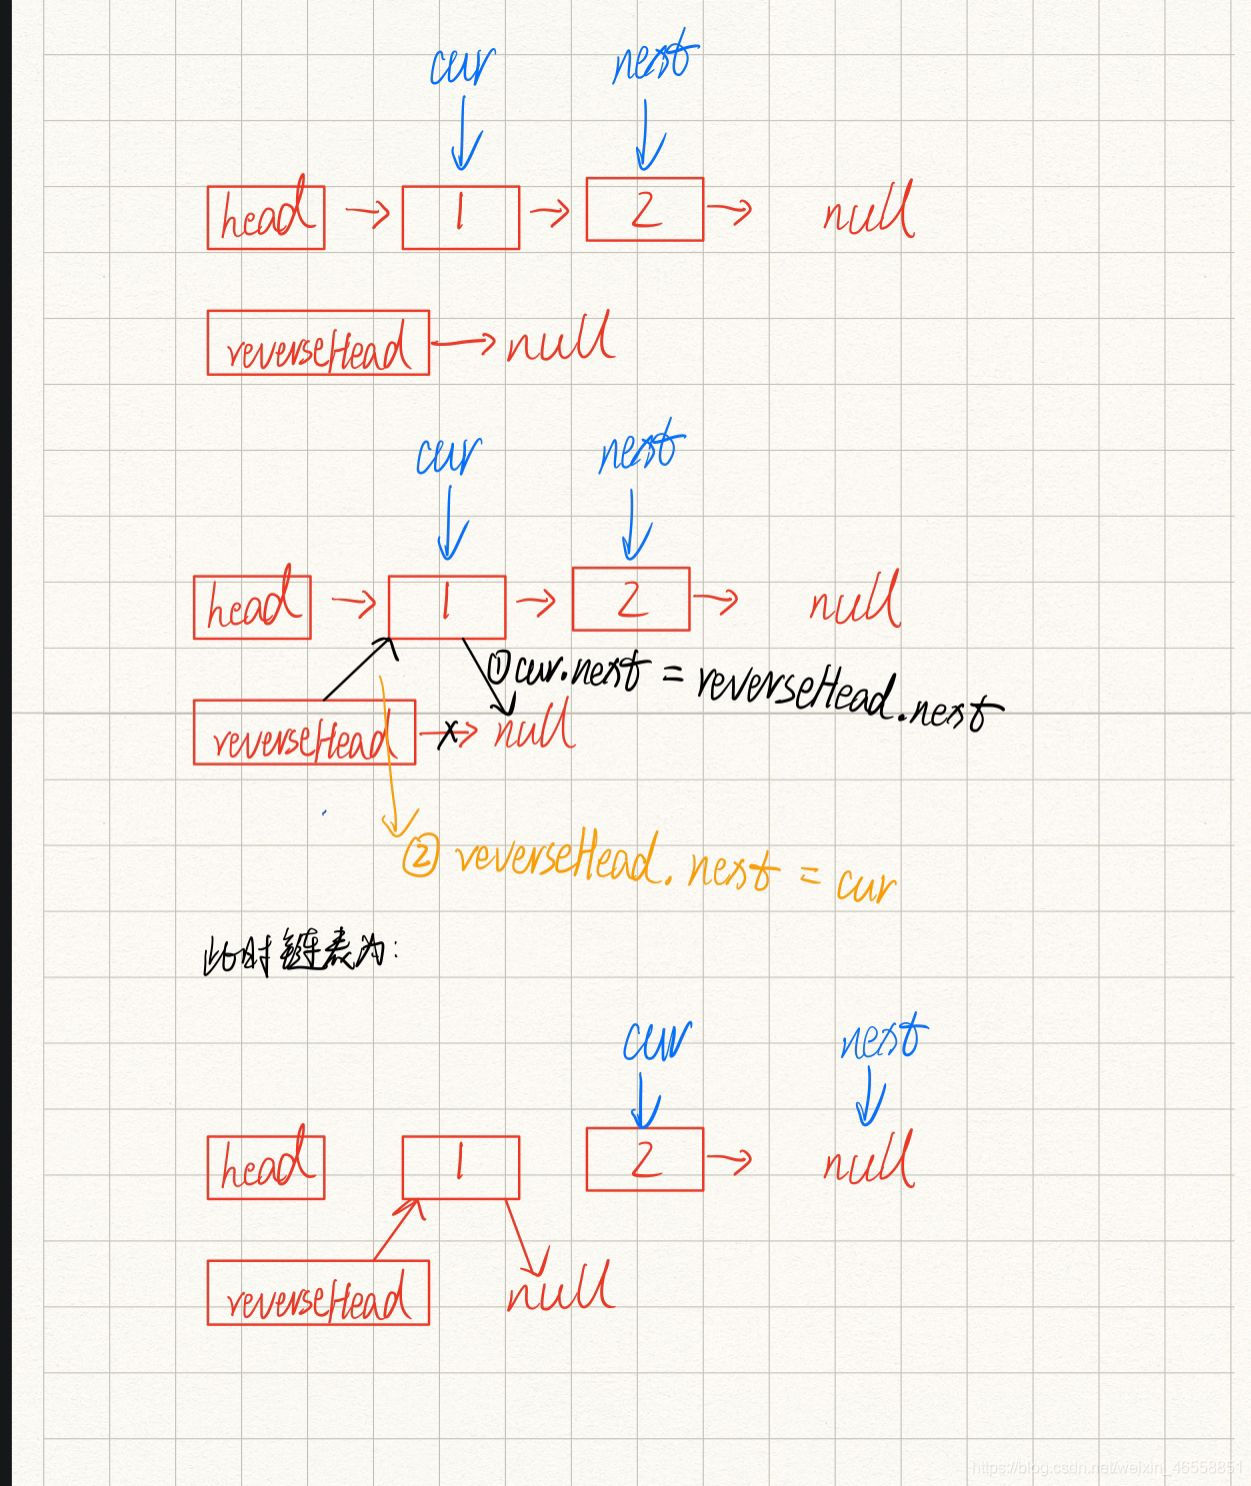 cur next
head → 1 → 2 → null
reverseHead → null
cur next
head → 1 → 2 → null
①cur.next = reverseHead.next
reverseHead → null
② reverseHead.next = cur
此时链表为:
cur next
head 1 2 → null
reverseHead null
https://blog.csdn.net/weixin_46558851